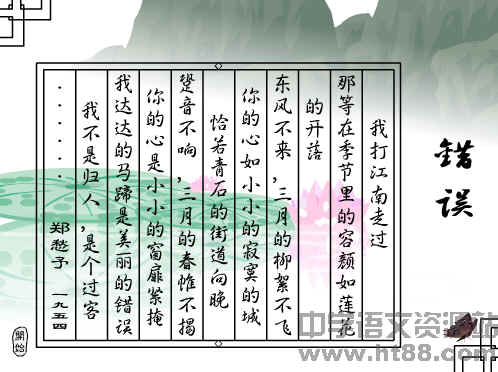 错误
我打江南走过
那等在季节里的容颜如莲花
的开落
东风不来,三月的柳絮不飞
你的心如小小的寂寞的城
恰若青石的街道向晚
跫音不响,三月的春帷不揭
你的心是小小的窗扉紧掩
我达达的马蹄是美丽的错误
我不是归人,是个过客
....... 郑愁予 一九五四
開始
中学语文资源站
http://www.ht88.com